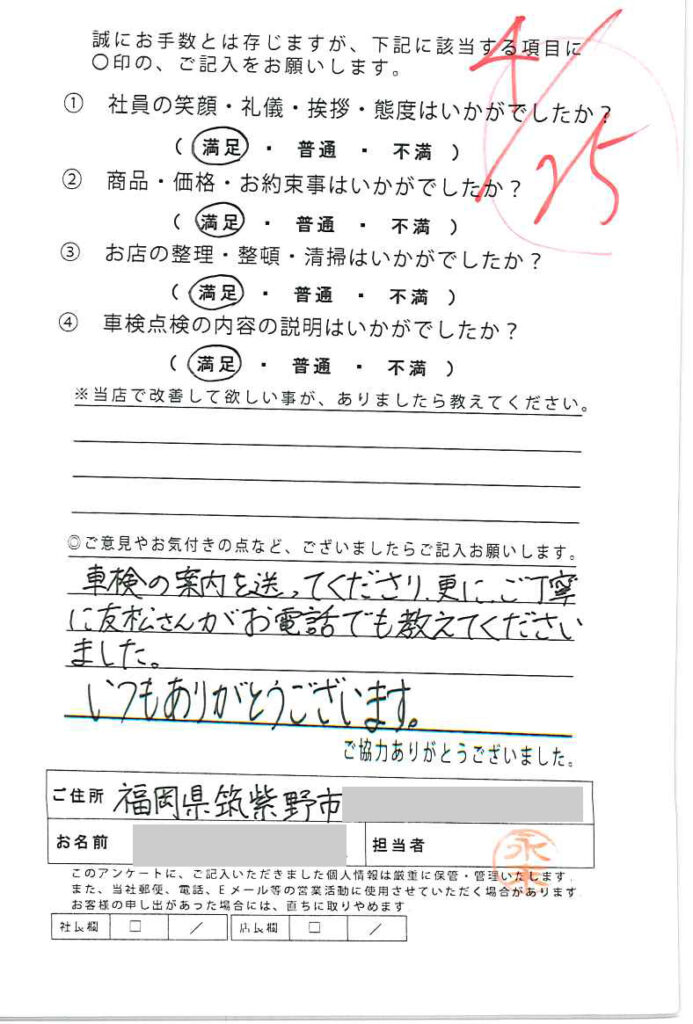 誠にお手数とは存じますが、下記に該当する項目に
〇印の、ご記入をお願いします。
4/25
① 社員の笑顔・礼儀・挨拶・態度はいかがでしたか？
（ 満足 ・ 普通 ・ 不満 ）
② 商品・価格・お約束事はいかがでしたか？
（ 満足 ・ 普通 ・ 不満 ）
③ お店の整理・整頓・清掃はいかがでしたか？
（ 満足 ・ 普通 ・ 不満 ）
④ 車検点検の内容の説明はいかがでしたか？
（ 満足 ・ 普通 ・ 不満 ）
※当店で改善して欲しい事が、ありましたら教えてください。
◎ご意見やお気付きの点など、ございましたらご記入お願いします。
車検の案内を送ってくださり、更に、ご丁寧
に友松さんがお電話でも教えてください
ました。
いつもありがとうございます。
ご協力ありがとうございました。
ご住所 福岡県筑紫野市
お名前 担当者
このアンケートに、ご記入いただきました個人情報は厳重に保管・管理いたします.
また、当社郵便、電話、Eメール等の営業活動に使用させていただく場合があります.
お客様の申し出があった場合には、直ちに取りやめます
社長欄 □ ／ 店長欄 □ ／